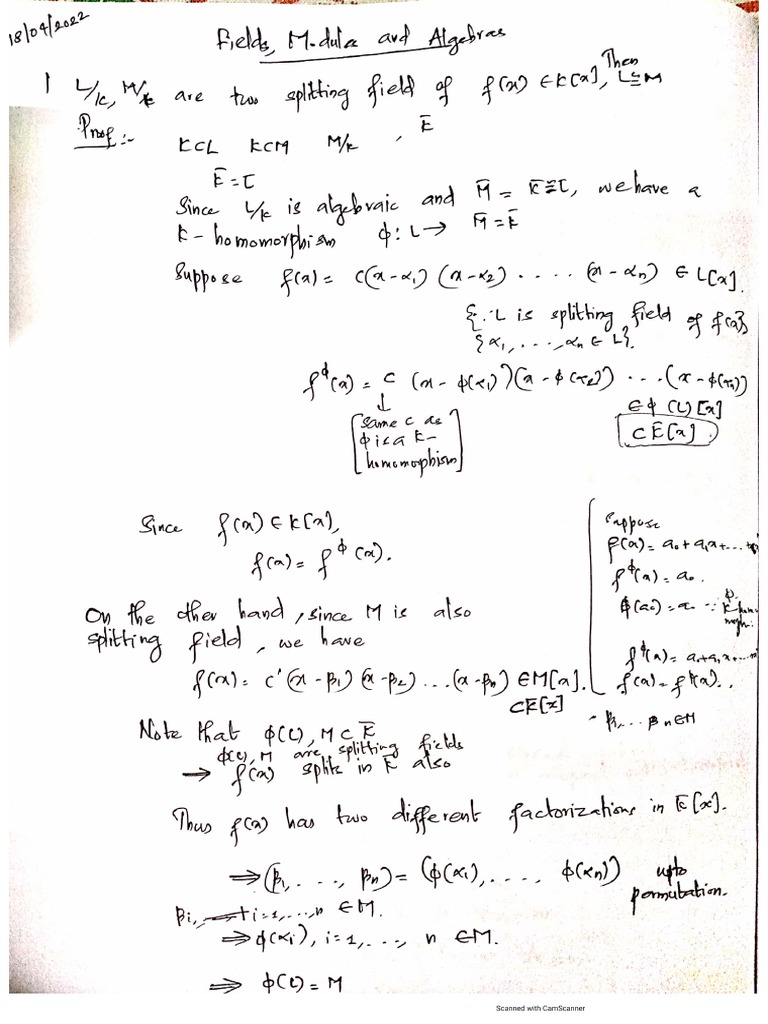 18/04/2022
Fields, Modules and Algebras
1 L/k, M/k are two splitting field of f(x) ∈ K[x], Then L ≅ M
Proof:-
K⊂L K⊂M M/k , K̄
K̄ = C
Since L/k is algebraic and M̄ = K̄ ≅ C, we have a
K-homomorphism ϕ: L → M̄ = K̄
Suppose f(x) = c(x-α₁)(x-α₂) .... (x-αₙ) ∈ L[x].
{∵ L is splitting field of f(x)}
{α₁, ..., αₙ ∈ L}.
f^ϕ(x) = c (x-ϕ(α₁))(x-ϕ(α₂)) ... (x-ϕ(αₙ))
↓
∈ ϕ(L)[x]
⊂ K̄[x]
[same c as
ϕ is a K-
homomorphism]
Since f(x) ∈ K[x],
f(x) = f^ϕ(x).
Suppose
f(x) = a₀ + a₁x + ...
f^ϕ(x) = a₀.
ϕ(a₀) = a₀ ∵ ϕ
f^ϕ(x) = a₀ + a₁x + ...
f(x) = f^ϕ(x).
On the other hand, since M is also
splitting field, we have
f(x) = c'(x-β₁)(x-β₂) ... (x-βₙ) ∈ M[x].
⊂ K̄[x]
- β₁, ... βₙ ∈ M
Note that ϕ(L), M ⊂ K̄
ϕ(L), M are splitting fields
→ f(x) splits in K̄ also
Thus f(x) has two different factorizations in K̄[x].
⇒ (β₁, ..., βₙ) = (ϕ(α₁), ...., ϕ(αₙ)) upto
permutation.
βᵢ, i=1, ..., n ∈ M.
⇒ ϕ(αᵢ), i=1, ..., n ∈ M.
⇒ ϕ(L) = M
Scanned with CamScanner